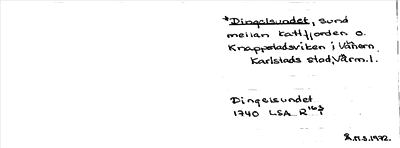 *Dingelsundet, sund
mellan Kattfjorden o.
Knappstadsviken i Vänern.
Karlstads stad, Värml.
Dingelsundet
1740 LSA R 163
Å.H.S. 1972.